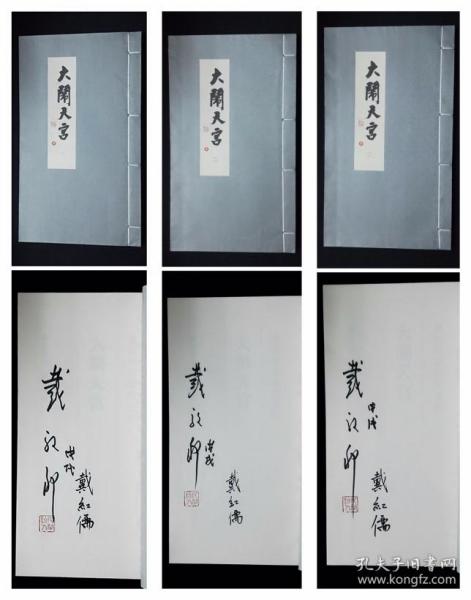 大閙天宫
二
大閙天宫
大閙天宫
戴敦邦
戊戌
戴紅儒
戴敦邦
戊戌
戴紅儒
戴敦邦
戊戌
戴紅儒
孔夫子旧书网
www.kongfz.com